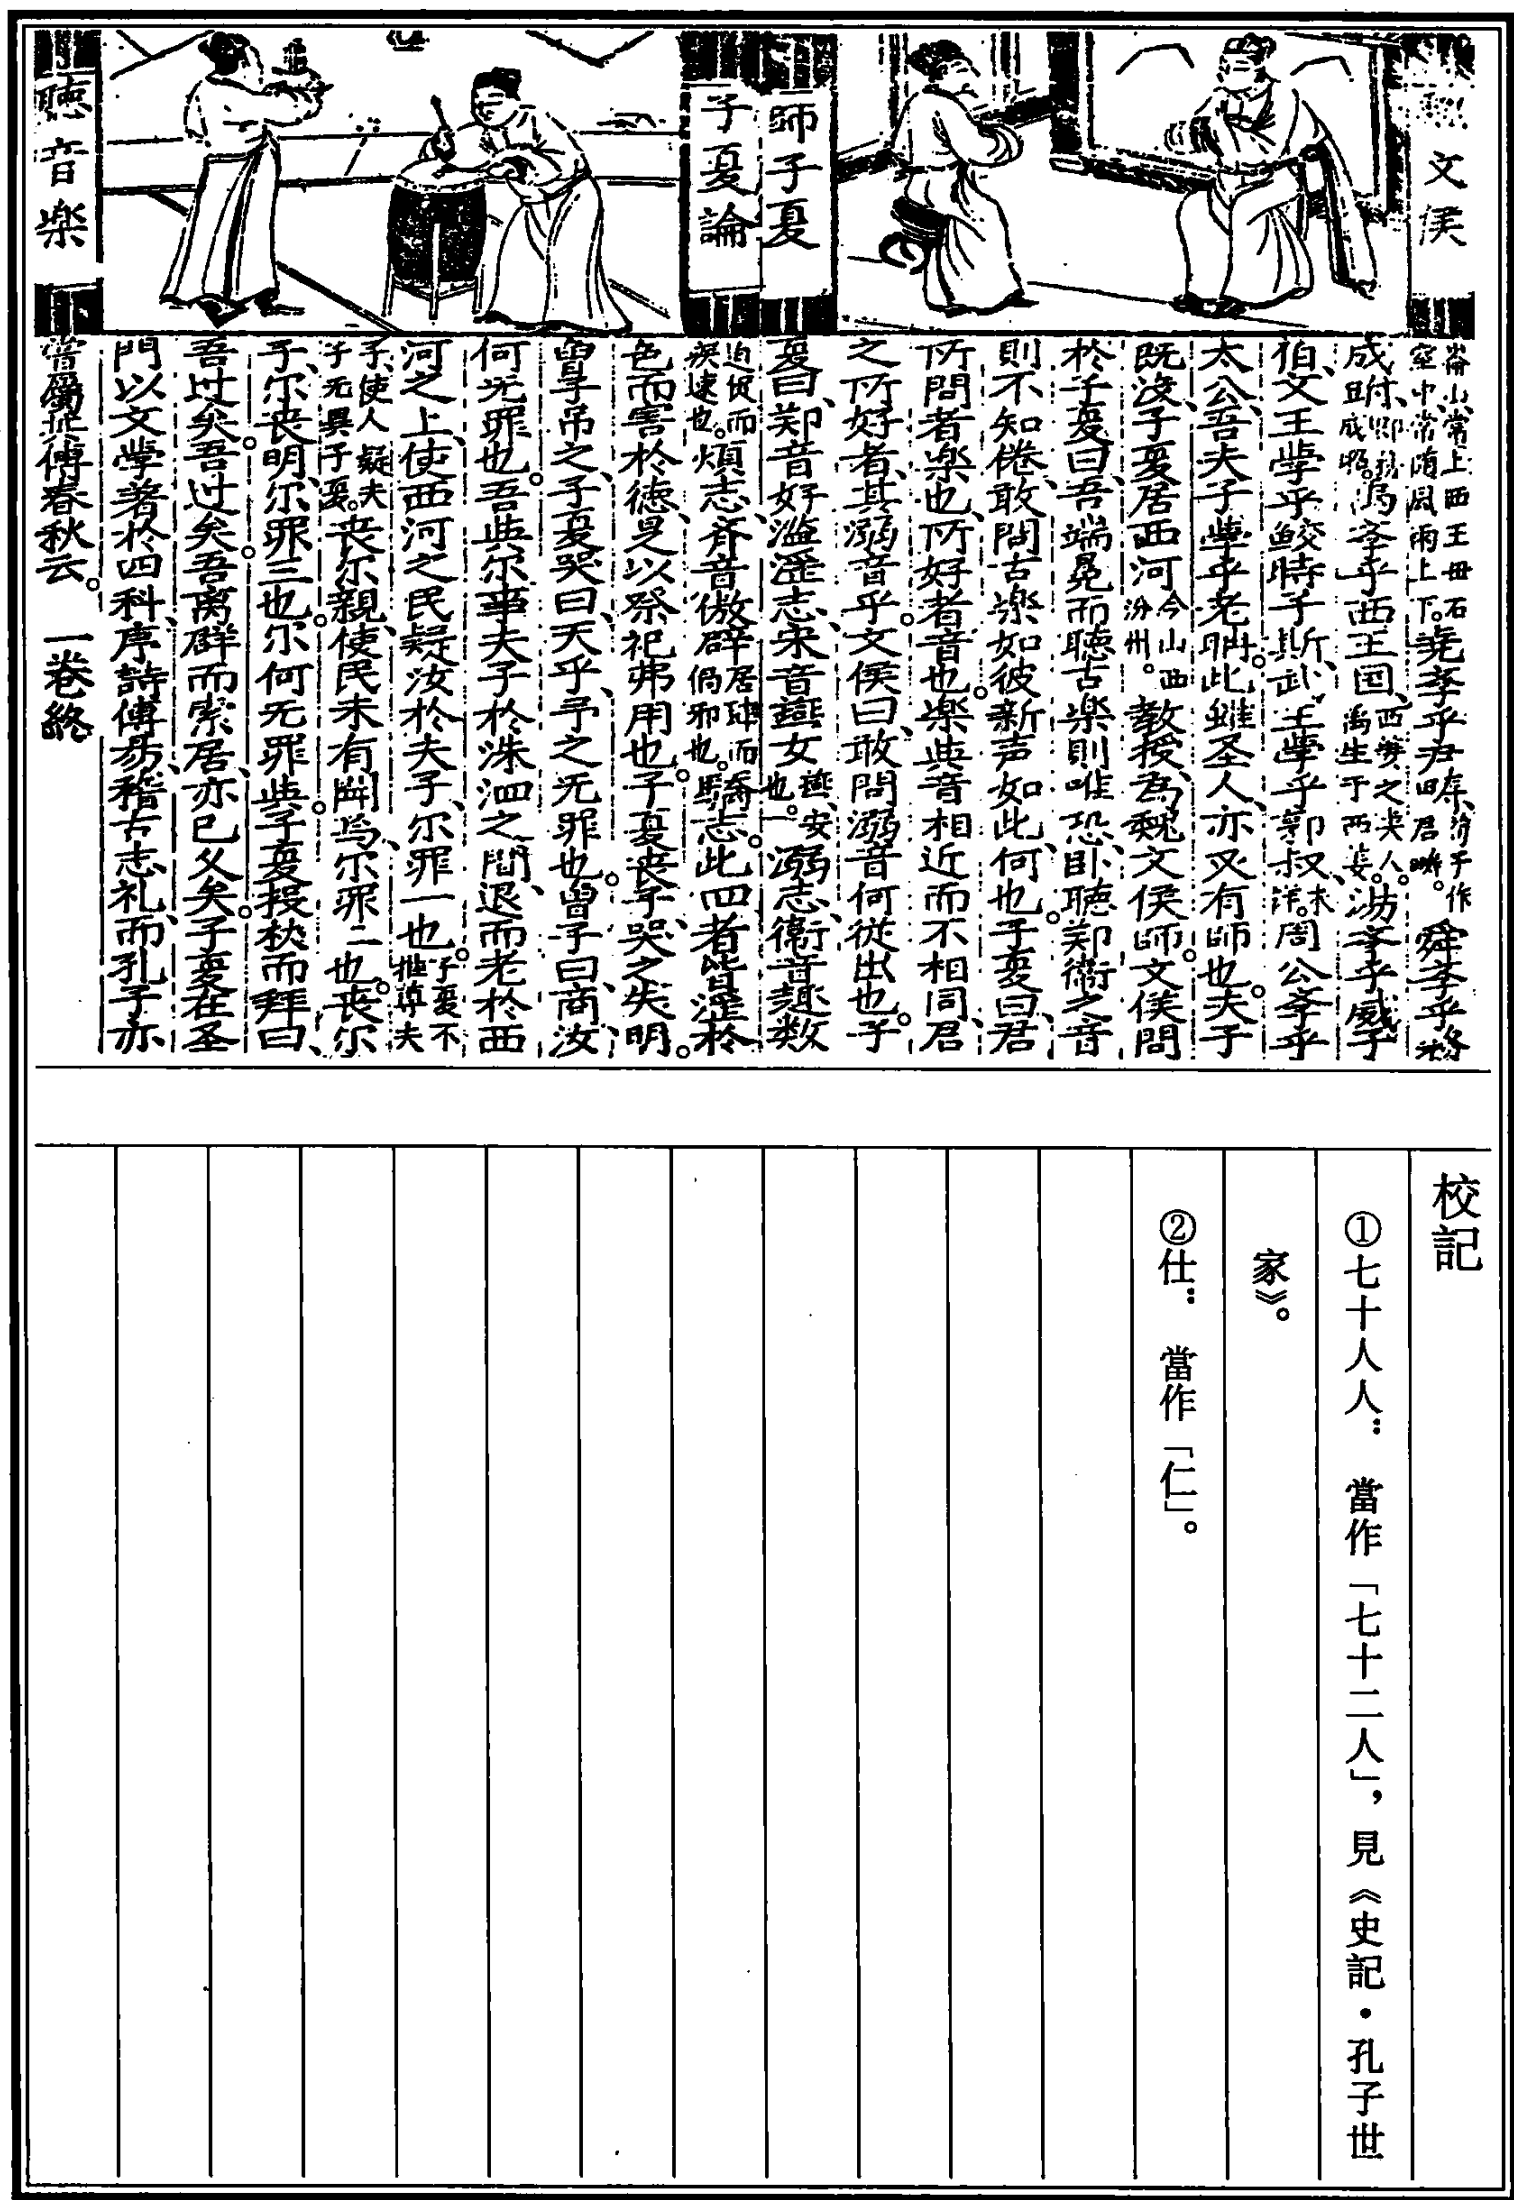 文侯
師子夏
子夏論
聴音楽
崙山、常上西王母石
空中、常隨風雨上下。堯孝乎尹
舜孝乎務
成
孝乎西王国、
孝乎威子
伯、文王孝乎鲛時子斯、武王孝乎郭叔、周公孝乎
太公、吾夫子孝乎老聃。此雖圣人、亦又有師也。夫子
既没、子夏居西河今山西汾州。教授、為魏文侯師。文侯問
於子夏曰、吾端冕而聴古楽則唯恐臥、聴郑衛之音
則不知倦、敢問古楽如彼、新声如此、何也。子夏曰、君
所問者楽也、所好者音也。楽與音相近而不相同、君
之所好者、其溺音乎。文侯曰、敢問溺音何従出也。子
夏曰、郑音好滥滛志、宋音燕女燕、安也。溺志、衛音趋数
迫促而疾速也。煩志、齐音傲辟居肆而偽邪也。驕志。此四者皆滛於
色而害於德、是以祭祀弗用也。子夏丧子、哭之失明。
曽子吊之、子夏哭曰、天乎、予之无罪也。曽子曰、商、汝
何无罪也。吾與尔事夫子於洙泗之間、退而老於西
河之上、使西河之民疑汝於夫子、尔罪一也。子夏不推尊夫
子、使人疑夫子无異子夏。丧尔親、使民未有闻焉、尔罪二也。丧尔
子、尔丧明、尔罪三也。尔何无罪與。子夏投杖而拜曰、
吾过矣。吾过矣。吾离群而索居、亦已久矣。子夏在圣
門以文学著於四科、序詩傅易、稽古志礼、而孔子亦
嘗屬其傅春秋云。 一巻終
校記
①七十人人： 當作「七十二人」，見《史記·孔子世
家》。
②仕： 當作「仁」。